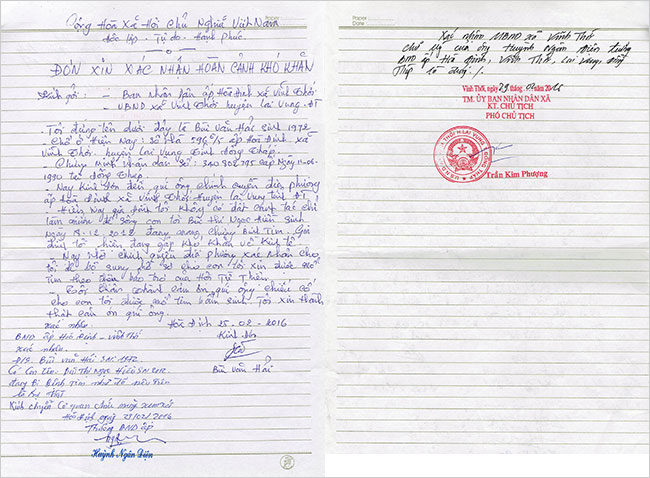 Cộng Hòa Xã Hội Chủ Nghĩa Việt Nam
Độc lập - Tự do - Hạnh phúc
ĐƠN XIN XÁC NHẬN HOÀN CẢNH KHÓ KHĂN
Kính gởi: - Ban nhân dân ấp Hòa Định xã Vĩnh Thới
- UBND xã Vĩnh Thới huyện Lai Vung. ĐT
Tôi đứng tên dưới đây là Bùi Văn Hải Sinh 1972
Chổ ở Hiện Nay: Số nhà 596/5 ấp Hòa Định, xã
Vĩnh Thới huyện Lai Vung Tỉnh Đồng Tháp.
Chứng Minh nhân dân Số:
1990 tại Đồng Tháp.
Nay Kính đơn đến quí ông chính quyền địa phương
ấp Hòa Định xã Vĩnh Thới Huyện Lai Vung tỉnh ĐT
Hiện Nay gia đình tôi không có đất canh tác chỉ
làm mướn để sống con tôi Bùi Thị Ngọc Hiền sinh
đang mang chứng Bịnh Tim. Gia
đình tôi hiện đang gặp khó khăn về Kinh tế.
Nay Nhờ chính quyền địa phương xác nhận cho
tôi để bổ sung hồ sơ cho con tôi xin được mổ
tim theo diện hổ trợ của Hội Từ Thiện.
chân thành cảm ơn quí ông chiếu cố
cho con tôi được mổ tim bẩm sinh. Tôi xin thành
thật cảm ơn quí ông.
Hòa Định 25.02-2016
xác nhận
Kính đơn
BND ấp Hòa Định - Vĩnh Thới
xác nhận
Bùi Văn Hải SN: 1972
Có Con tên: Bùi Thị Ngọc Hiền SN 2012
đang Bị Bệnh tim như đã nêu trên
là sự thật
Bùi Văn Hải
Kính chuyển Cơ quan chức năng xem xét
Hòa Định ngày 29/02/2016
Trưởng BND ấp
Huỳnh Ngân Điện
Paper
Date
Xác nhận UBND xã Vĩnh Thới
Chữ ký của ông Huỳnh Ngân Điện trưởng
BND ấp Hòa Định, Vĩnh Thới, Lai Vung, Đồng
Tháp là đúng./.
Vĩnh Thới, ngày 29 tháng 02 năm 2016
TM. ỦY BAN NHÂN DÂN XÃ
KT. CHỦ TỊCH
PHÓ CHỦ TỊCH
Trần Kim Phượng